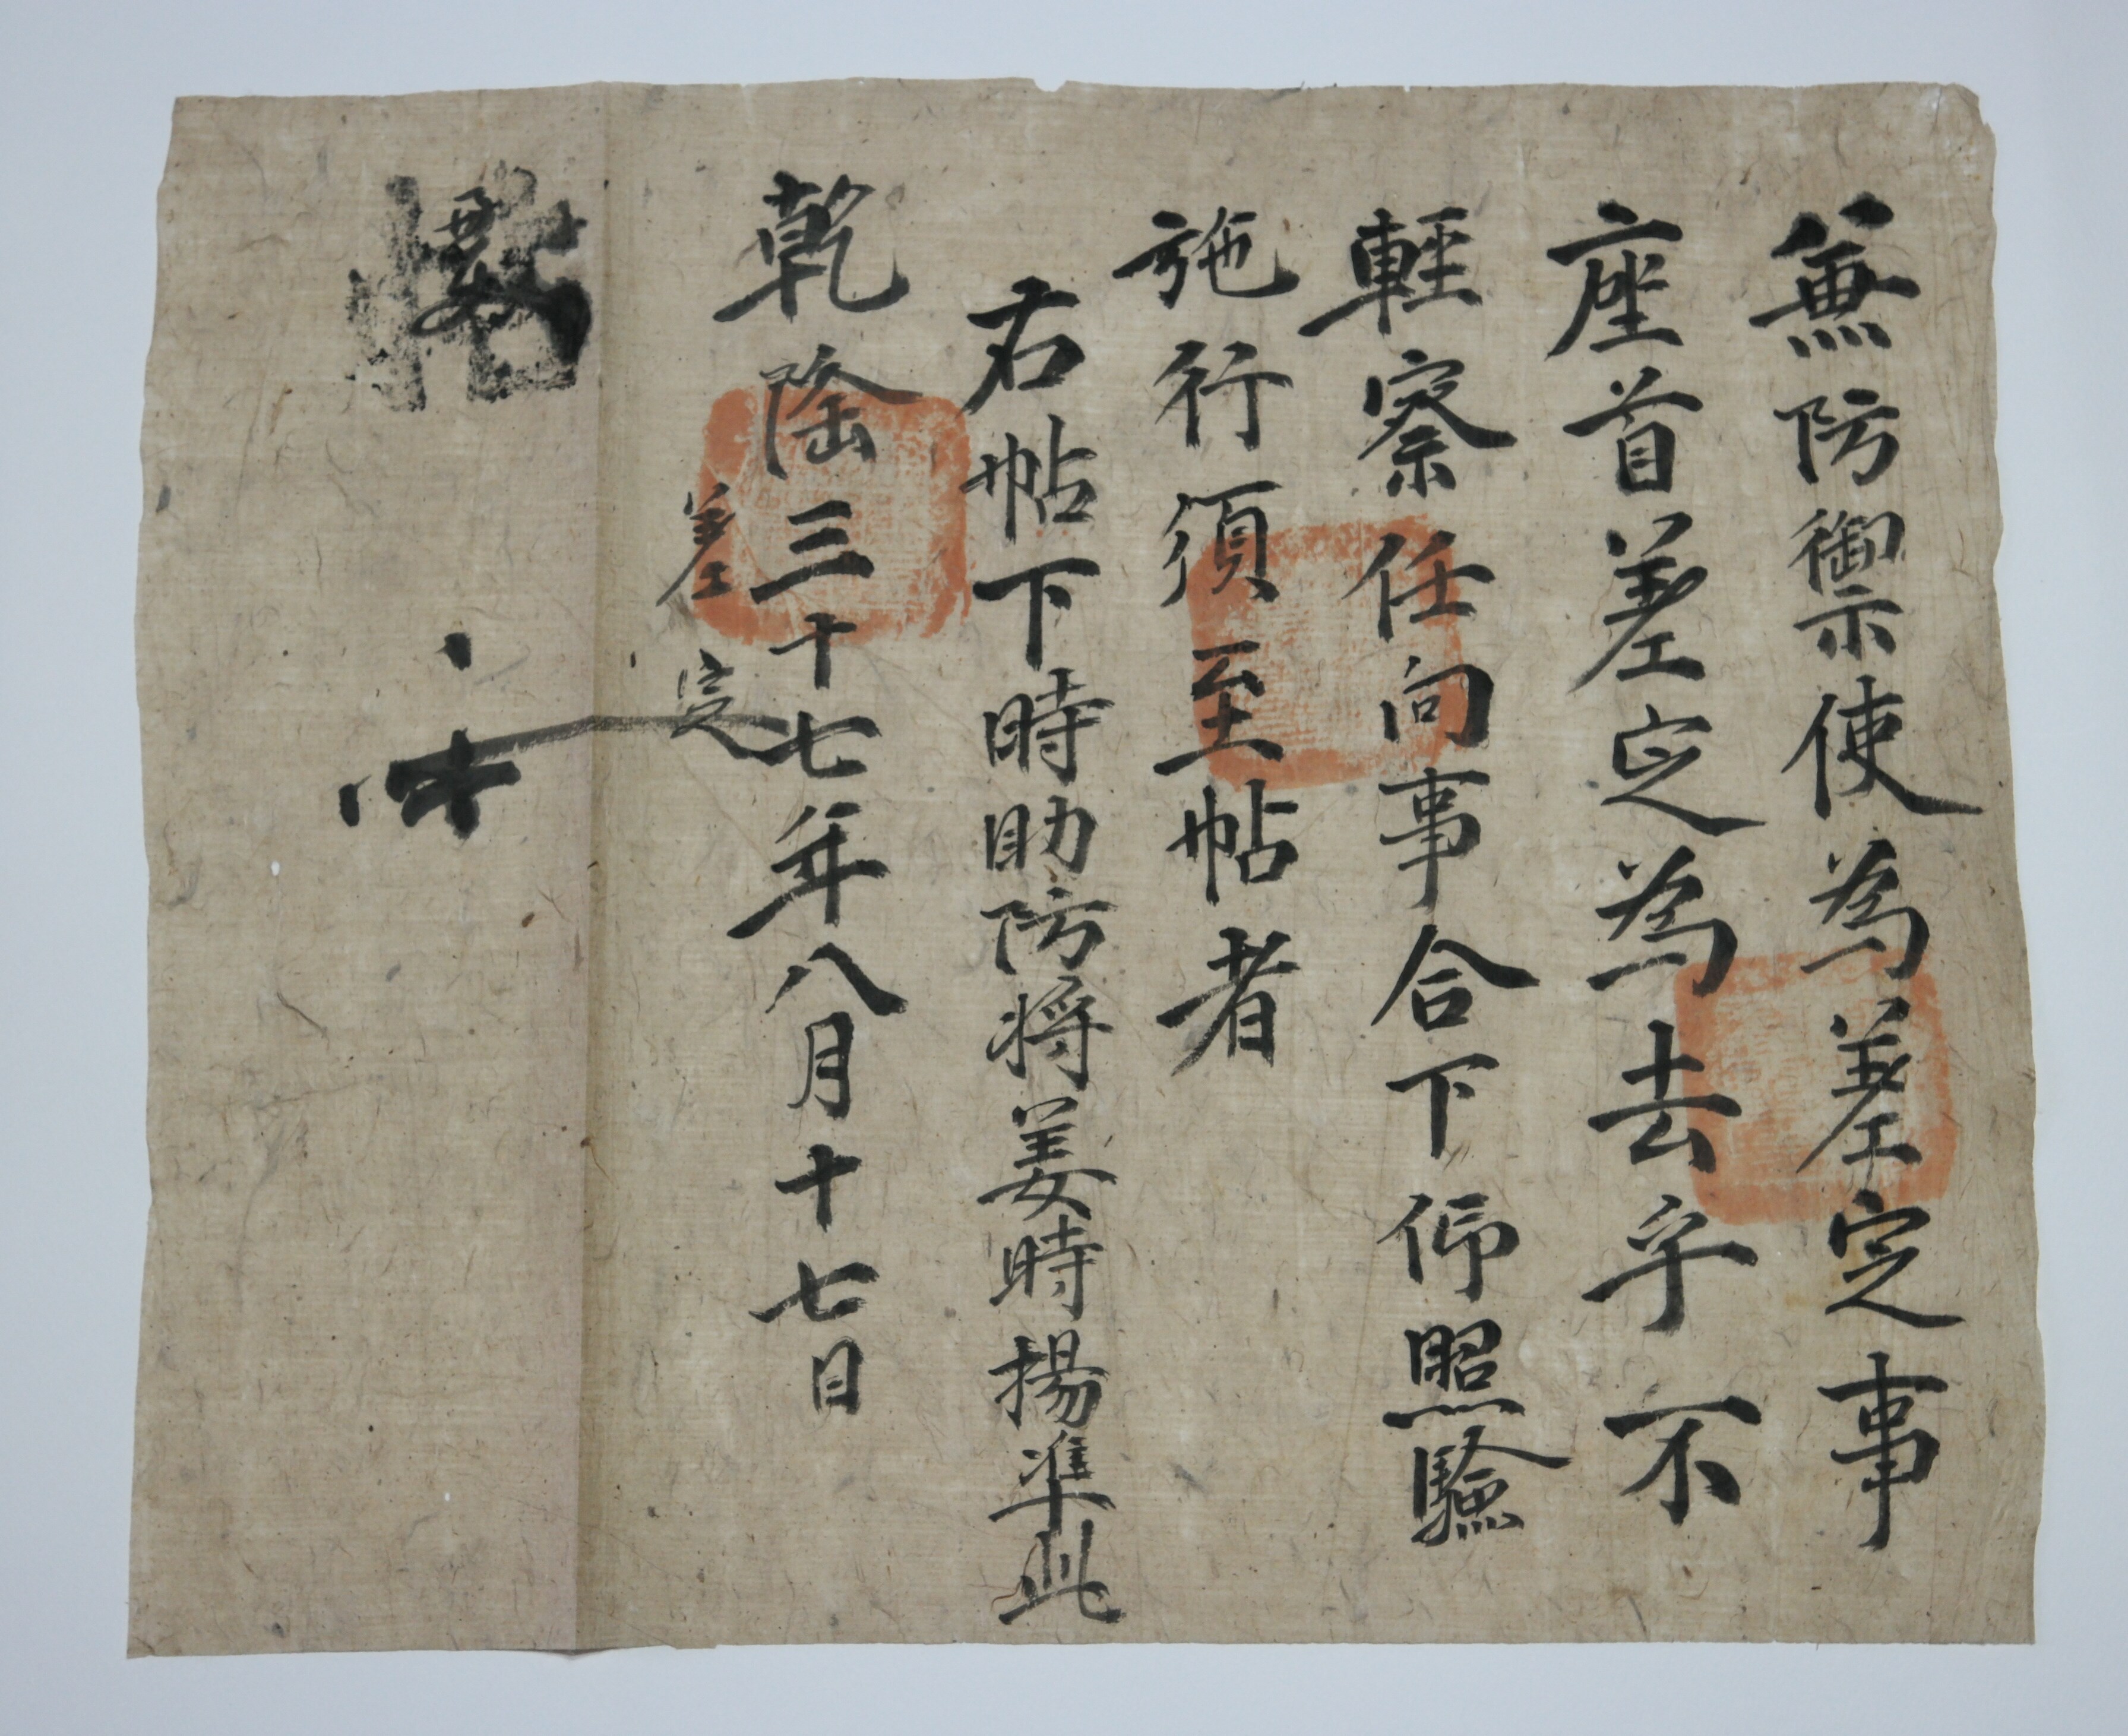 兼防禦使為差定事
座首差定為去乎不
輕察任向事合下仰照驗
施行須至帖者
右帖下時助防将姜時揚準此
乾隆三十七年八月十七日
差定